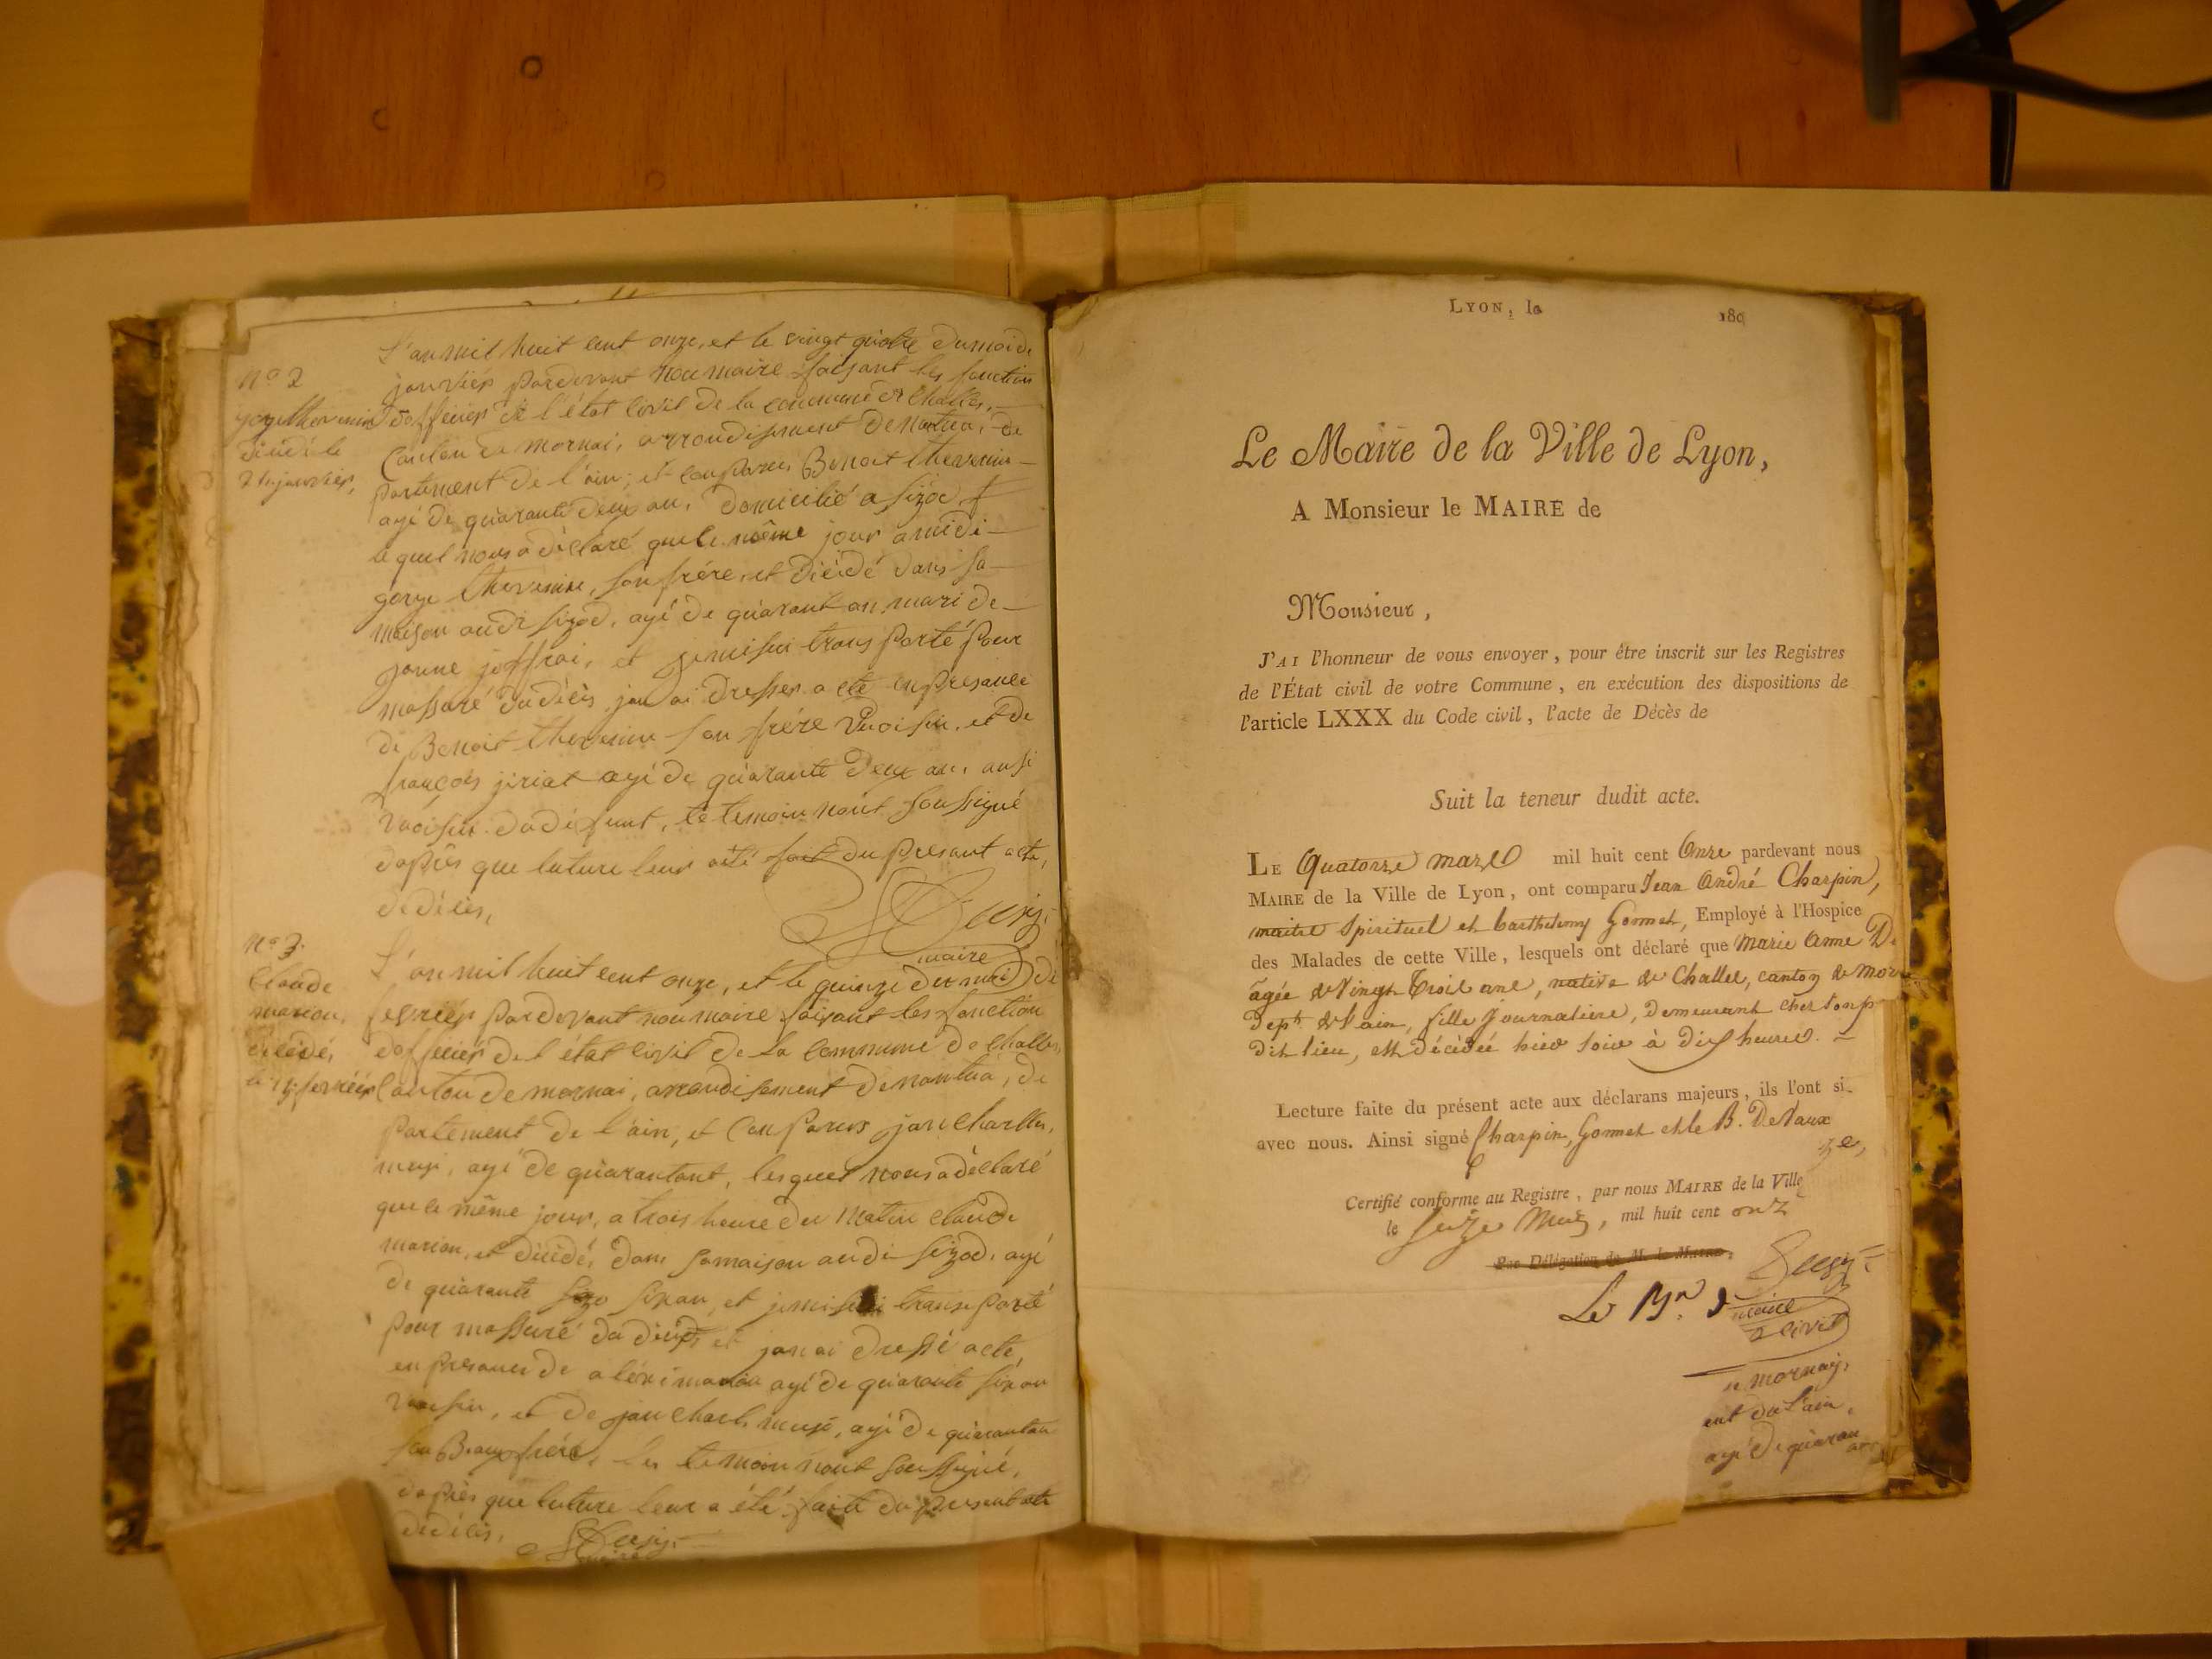 L'an mil huit cent onze, et le vingt quatre du moi de
N° 2
janvier pardevant nou maire faisant les fonction
gorge thevenin
d'officier de l'état civil de la commune de Challes,
décidé le
Canton de mornai, arrondisement de nantua, de
21 janvier,
partement de l'ain, et conparus Benoit thevenin
agé de quarante deux an, domicilié a sizod
le quel nous a déclaré que le même jour a midi
gorge thevenin, son frére, et décidé dans sa
maison audi sizod, agé de quarant an mari de
janne joffrai, et je me sui trans porté pour
massuré du décès, jan ai dresser acte en presance
de Benoit thevenin son frére voisin, et de
françois jiriat agé de quarante deux an, ausi
voisin du défunt, le temoin nont sousigné
daprès que luture leur a été fait du presant acte,
de décès,
maire
N° 3.
L'an mil huit cent onze, et le quinze du moi de
Claude
marion,
fevriér pardevant nou maire faisant les fonction
décédé,
d'officiér de l'état civil de la commune de Challes,
le 15 fevriér
Canton de mornai, arrondisement de nantua, de
partement de l'ain, et Conparus jan Charlles,
musi, agé de quarantant, lesquel nous a déclaré
que le même jour, a trois heure du Matin claude
marion, et décidé, dans sa maison audi sizod, agé
de quarante six an, et je me sui transporté
pour massuré du décès et jan ai dressé acte,
en presance de marion agé de quarante six an
voisin, et de jan Charle musi, agé de quarantan
son Beaux frére, les temoin nont sousigné,
daprès que luture leur a été faite du presant acte
de décès,
maire
LYON, le 180
Le Maire de la Ville de Lyon,
A Monsieur le MAIRE de
Monsieur,
J'AI l'honneur de vous envoyer, pour être inscrit sur les Registres
de l'État civil de votre Commune, en exécution des dispositions de
l'article LXXX du Code civil, l'acte de Décès de
Suit la teneur dudit acte.
LE Quatorze mars mil huit cent Onze pardevant nous
MAIRE de la Ville de Lyon, ont comparu Jean André Charpin,
maitre Spirituel et barthelemy Gonnet, Employé à l'Hospice
des Malades de cette Ville, lesquels ont déclaré que marie Anne
âgée de Vingt Trois ans, native de Challes, canton de Mor
Dept de l'ain, fille Journaliere, demeurant chez son p
dit lieu, est décédée hier soir à dix heures.
Lecture faite du présent acte aux déclarans majeurs, ils l'ont si-
avec nous. Ainsi signé Charpin, Gonnet et le B. Devaux
Certifié conforme au Registre, par nous MAIRE de la Ville
le seize Mars, mil huit cent onz
Par Délégation de M. le MAIRE,
Le Bn d
maire
civil
mornay,
ent de l'ain,
agé de quaran